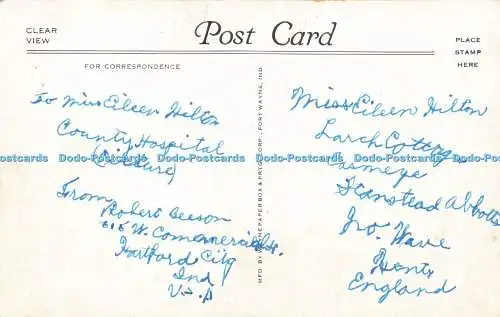 CLEAR
VIEW
Post Card
PLACE
STAMP
HERE
FOR CORRESPONDENCE
To Miss Eileen Hilton
County Hospital
(Picture)
From
Robert Beeson
W. Commercial St.
Hartford City
Ind
U.S.A
MFD BY THE PAPER BOX & PRTG. CORP. - FORT WAYNE, IND.
Miss Eileen Hilton
Larch Cottage
Stanstead Abbotts
Nr. Ware
Herts
England
Dodo-Postcards Dodo-Postcards Dodo-Postcards Dodo-Postcards Dodo-Postcards